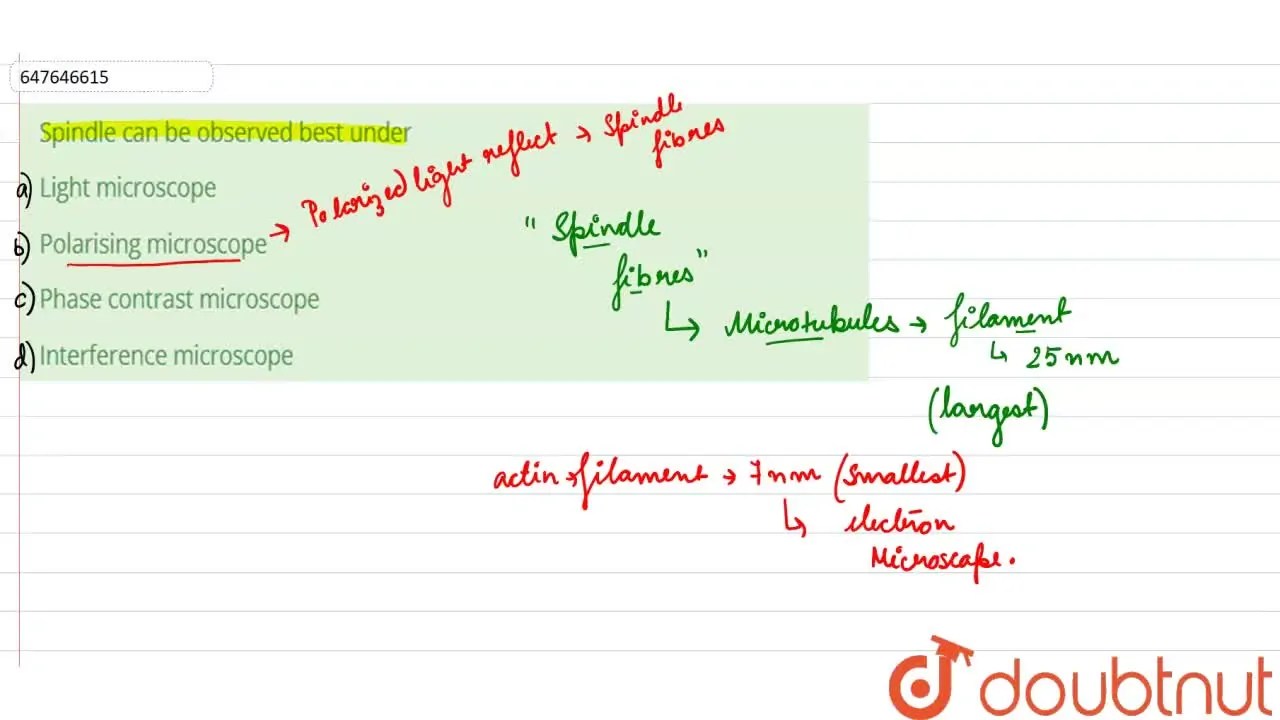 647646615
Spindle can be observed best under
a) Light microscope
b) Polarising microscope → Polarized light reflect → Spindle fibres
c) Phase contrast microscope
d) Interference microscope
" Spindle
fibres "
↳ Microtubules → filament
↳ 25 nm
(largest)
actin → filament → 7nm (Smallest)
↳ electron
Microscope.
doubtnut